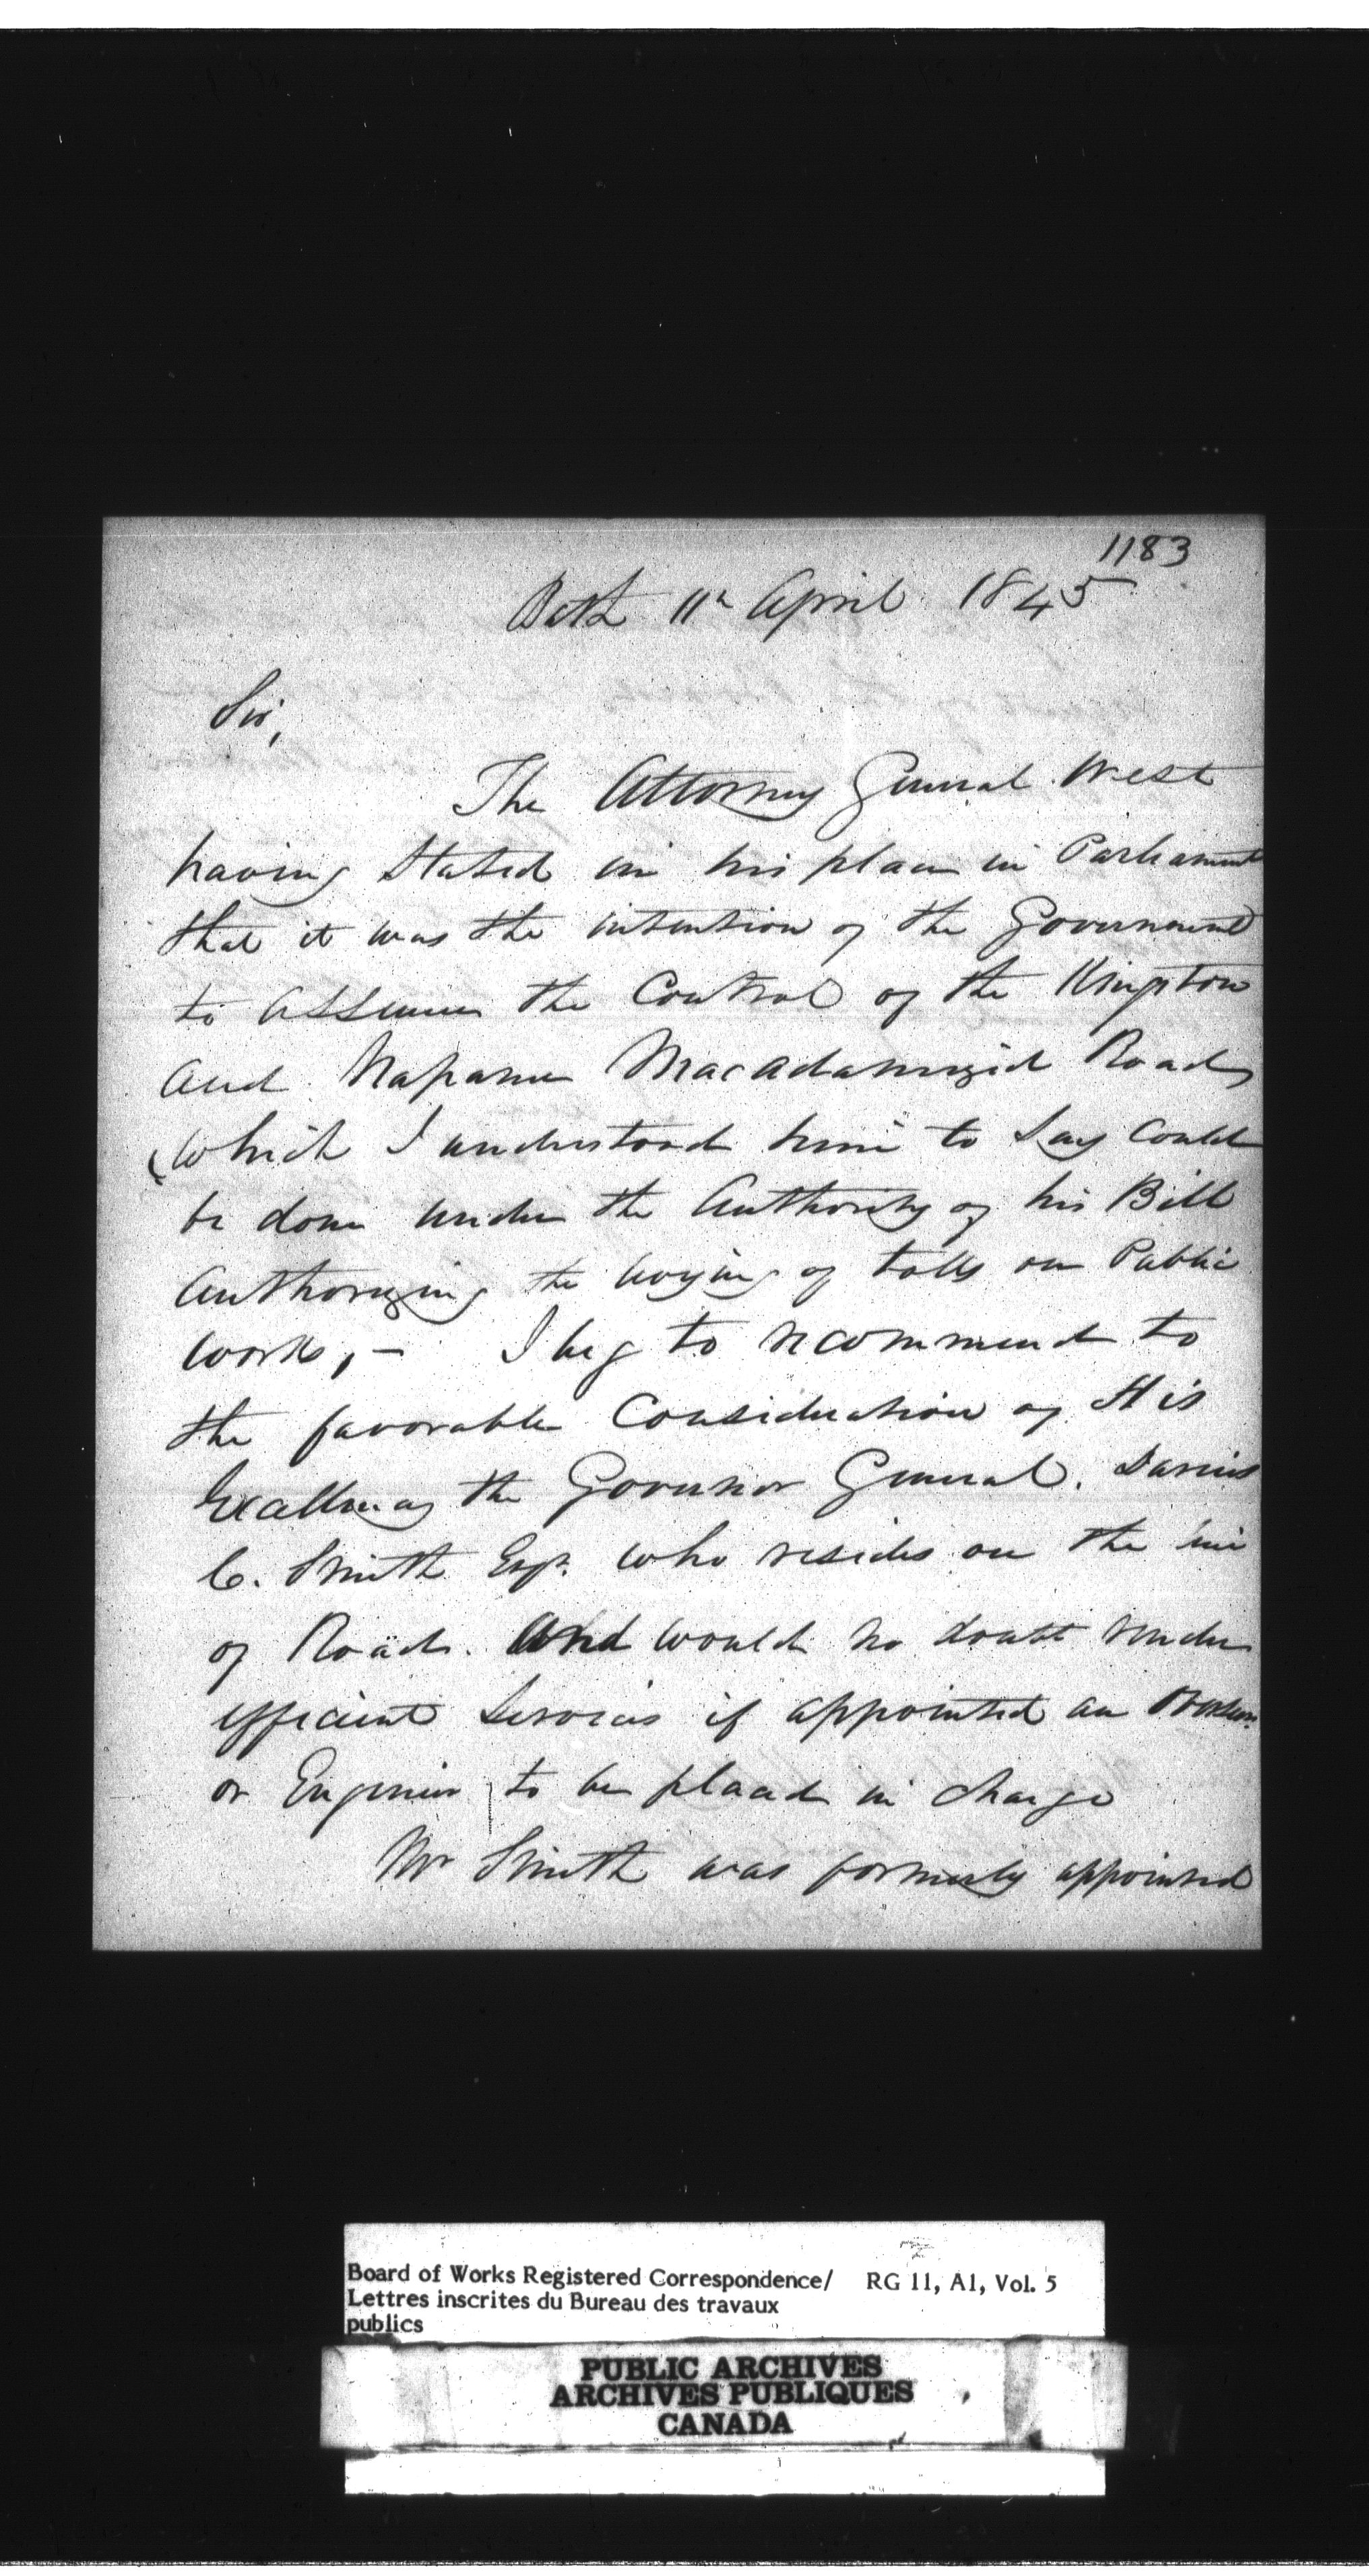 1183
Bath 11th April 1845
Sir,
The Attorney General West
having Stated in his place in Parliament
that it was the intention of the Government
to assume the Control of the Kingston
and Napanee Macadamized Road
(which I understood him to Say Could
be done under the Authority of his Bill
Authorizing the levying of tolls on Public
works, - I beg to recommend to
the favorable Consideration of His
Excellency the Governor General. Darius
C. Smith Esqr. who resides on the line
of Road. And would no doubt render
efficient Services if appointed an
or Engineer to be placed in charge
Mr Smith was formerly appointed
Board of Works Registered Correspondence/ RG 11, A1, Vol. 5
Lettres inscrites du Bureau des travaux
publics
PUBLIC ARCHIVES
ARCHIVES PUBLIQUES
CANADA